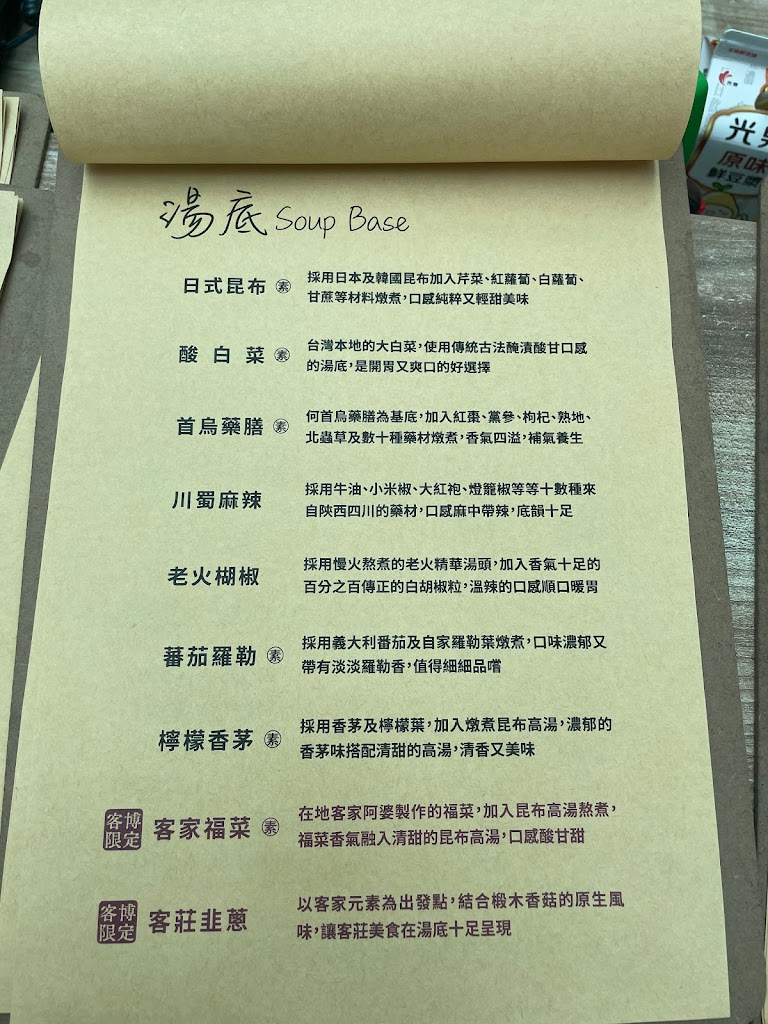 湯底 Soup Base
日式昆布 素
採用日本及韓國昆布加入芹菜、紅蘿蔔、白蘿蔔、
甘蔗等材料燉煮，口感純粹又輕甜美味
酸白菜 素
台灣本地的大白菜，使用傳統古法醃漬酸甘口感
的湯底，是開胃又爽口的好選擇
首烏藥膳 素
何首烏藥膳為基底，加入紅棗、黨參、枸杞、熟地、
北蟲草及數十種藥材燉煮，香氣四溢，補氣養生
川蜀麻辣
採用牛油、小米椒、大紅袍、燈籠椒等等十數種來
自陝西四川的藥材，口感麻中帶辣，底韻十足
老火楜椒
採用慢火熬煮的老火精華湯頭，加入香氣十足的
百分之百傳正的白胡椒粒，溫辣的口感順口暖胃
蕃茄羅勒 素
採用義大利番茄及自家羅勒葉燉煮，口味濃郁又
帶有淡淡羅勒香，值得細細品嚐
檸檬香茅 素
採用香茅及檸檬葉，加入燉煮昆布高湯，濃郁的
香茅味搭配清甜的高湯，清香又美味
客博
限定
客家福菜 素
在地客家阿婆製作的福菜，加入昆布高湯熬煮，
福菜香氣融入清甜的昆布高湯，口感酸甘甜
客博
限定
客莊韭蔥
以客家元素為出發點，結合椴木香菇的原生風
味，讓客莊美食在湯底十足呈現
光
原味
鮮豆漿